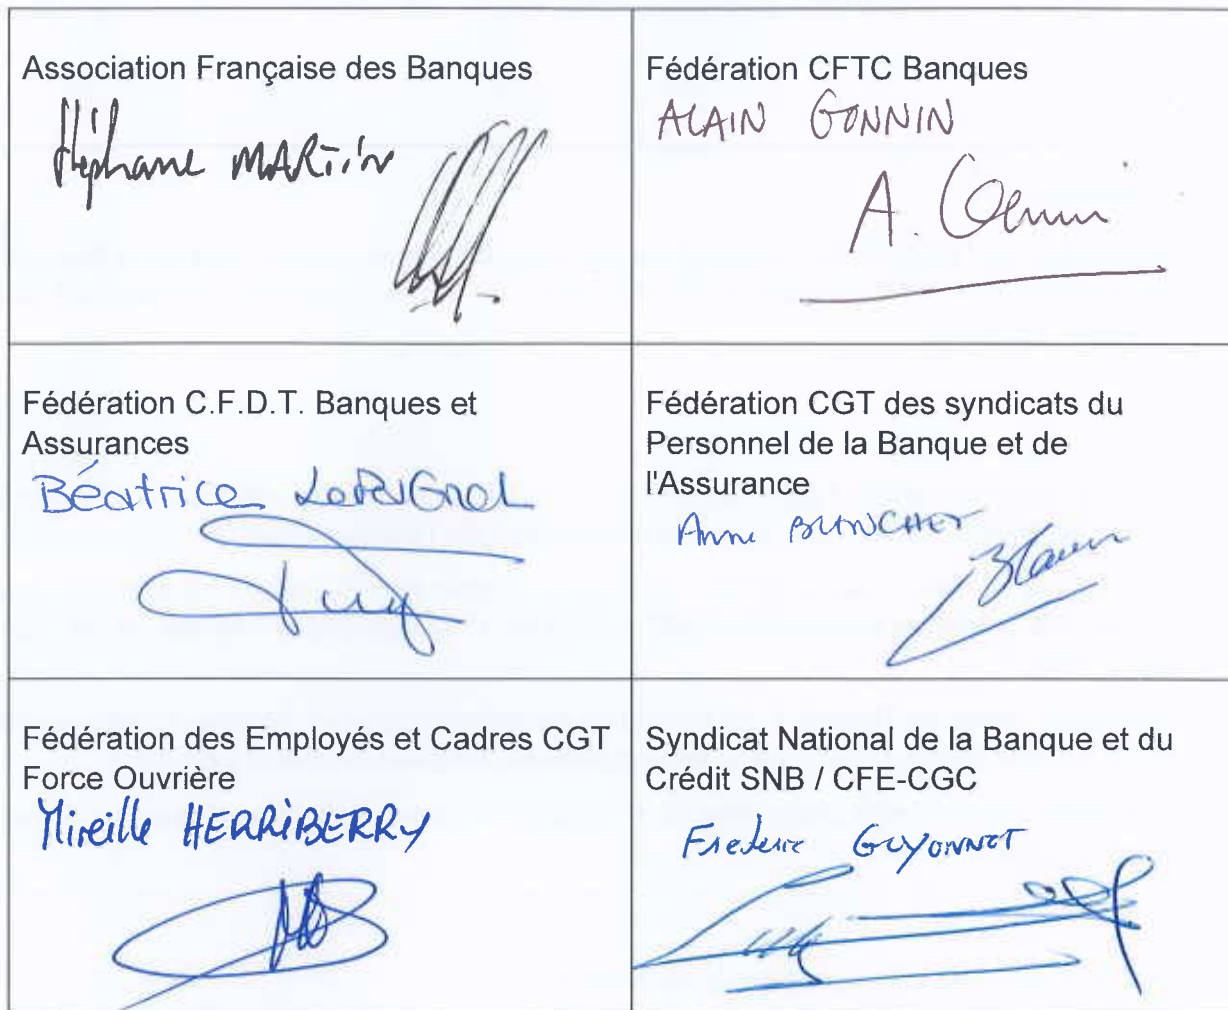 Association Française des Banques
Stéphane MARTIN
Fédération CFTC Banques
ALAIN GONNIN
A. Gonnin
Fédération C.F.D.T. Banques et
Assurances
Béatrice
Fédération CGT des syndicats du
Personnel de la Banque et de
l'Assurance
Anne BLANCHET
Fédération des Employés et Cadres CGT
Force Ouvrière
Mireille HERRIBERRY
Syndicat National de la Banque et du
Crédit SNB / CFE-CGC
Frederic GUYONNET